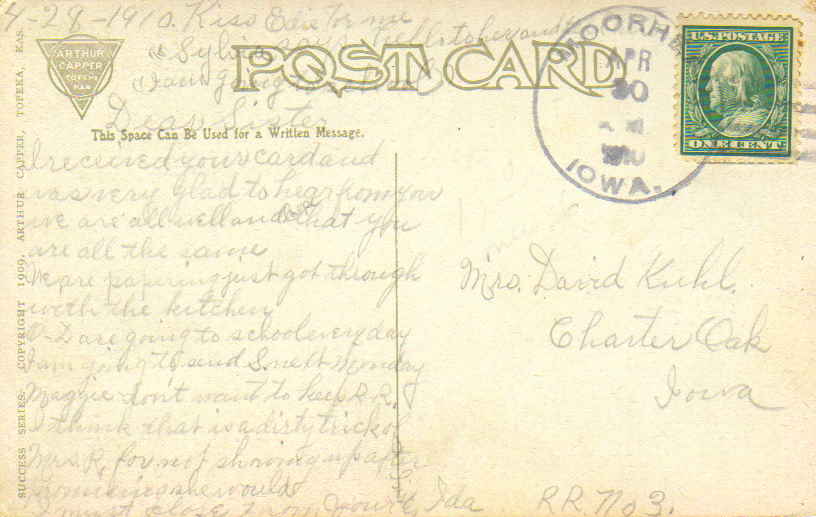 4-28-1910. Kiss Edie for me
"Sylvia says
"I am going to
Dear Sister
ARTHUR
CAPPER
TOPEKA
KAN
POST CARD
This Space Can Be Used for a Written Message.
I received your card and
was very glad to hear from you
we are all well and hope that you
are all the same
We are papering just got through
with the kitchen
O-D are going to school every day
I am going to send S. next Monday
Maggie don't want to keep R.R.
I think that is a dirty trick of
Mrs R, for not showing up after
promising she would
I must close From Yours, Ida
SUCCESS SERIES; COPYRIGHT 1909, ARTHUR CAPPER, TOPEKA, KAS.
MOORHE
APR
30
1910
IOWA.
U.S. POSTAGE
ONE CENT
Mrs. David Kuhl.
Charter Oak
Iowa
R R No 3.